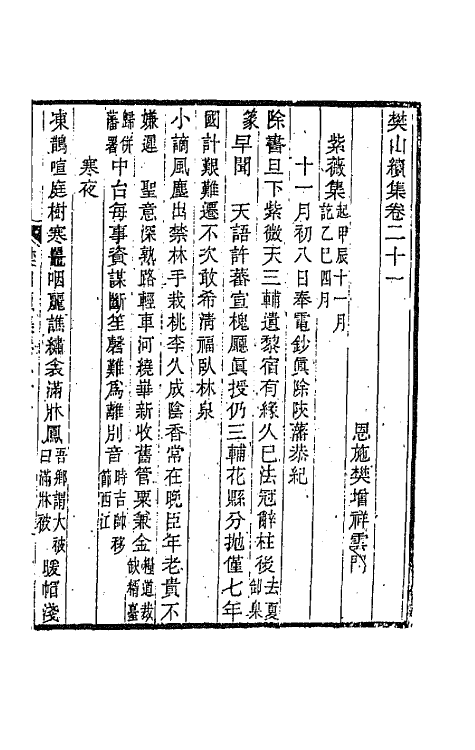 樊山續集卷二十一
恩施樊增祥雲門
紫薇集起甲辰十一月訖乙巳四月
十一月初八日奉電鈔眞除陝藩恭紀
除書旦下紫薇天三輔遺黎宿有緣久巳法冠辭柱後去夏卸臬
篆早聞　天語許蕃宣槐廳眞授仍三輔花縣分拋僅七年
國計艱難遷不次敢希淸福臥林泉
小謫風塵出禁林手栽桃李久成陰香常在晚臣年老貴不
嫌遲　聖意深熟路輕車河繞華新收舊管粟兼金糧道裁缺糈臺
歸併藩署中台每事資謀斷笙磬難爲離別音時吉帥移節西江
寒夜
凍鵲喧庭樹寒鼉咽麗譙繡衾滿牀鳳吾鄉謂大被曰滿牀被暖帽淺